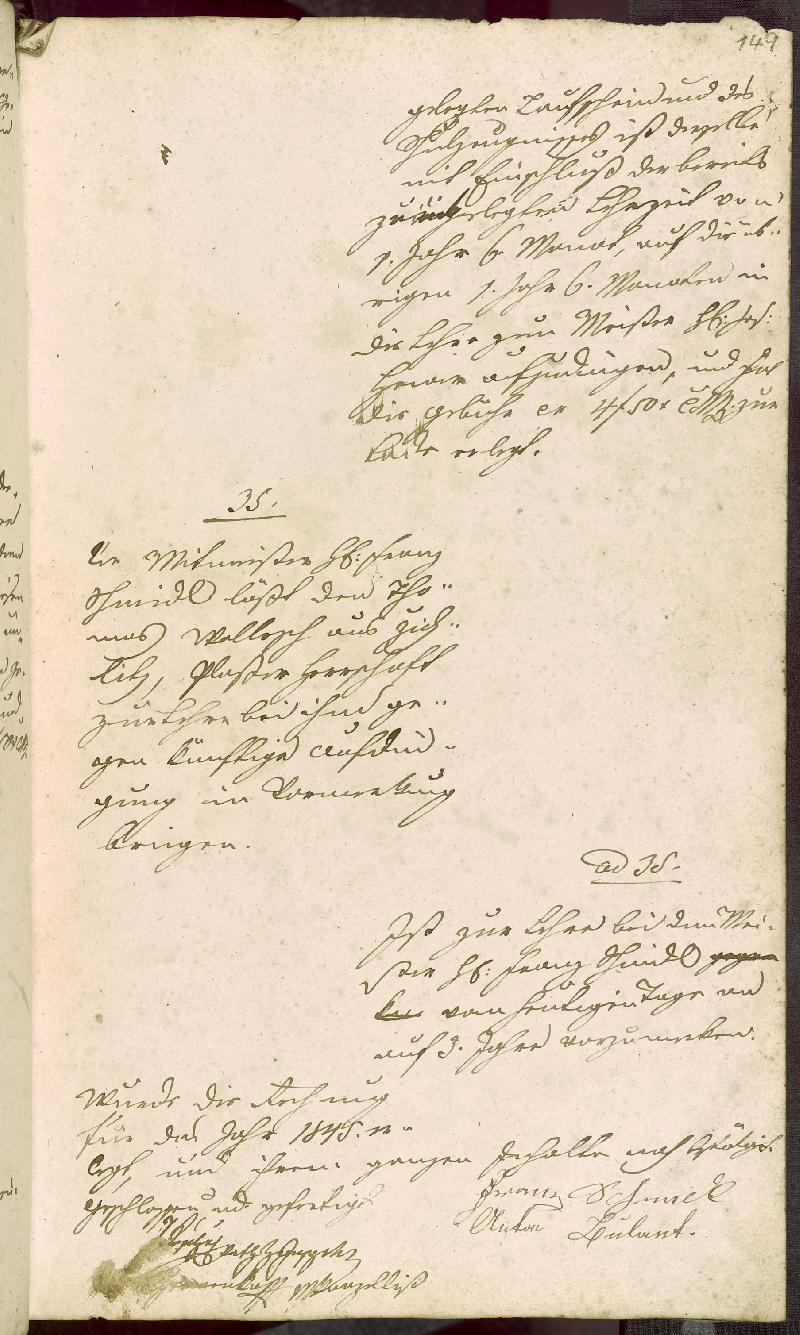 149
gelegten Taufschein und des
Schulzeugnisses ist derselbe
mit Einschluß der bereits
zurückgelegten Lehrzeit von
1. Jahr 6. Monat, auf die üb-
rigen 1. Jahr 6. Monaten in
die Lehre zum Meister H: Jos:
aufzudingen, und hat
die gebühr er 4f 50x CMz. zur
Lade erlegt.
35.
Der Mitmeister H: Franz
Schmidl läßt den Tho-
mas Wellesch aus
Plaßer Herrschaft
zur Lehre bei ihm ge-
gen künftige Aufdin-
gung in Vormerkung
bringen.
ad 35.
Ist zur Lehre bei dem Mei-
ster H: Franz Schmidl gegen
vom heutigen Tage an
auf 3. Jahre vorzumerken.
Wurde die Rechnung
für das Jahr 1845. er-
legt, und ihrem ganzen Inhalte nach
geschlossen und gefertigt
Franz Schmidl
Anton Bulant.